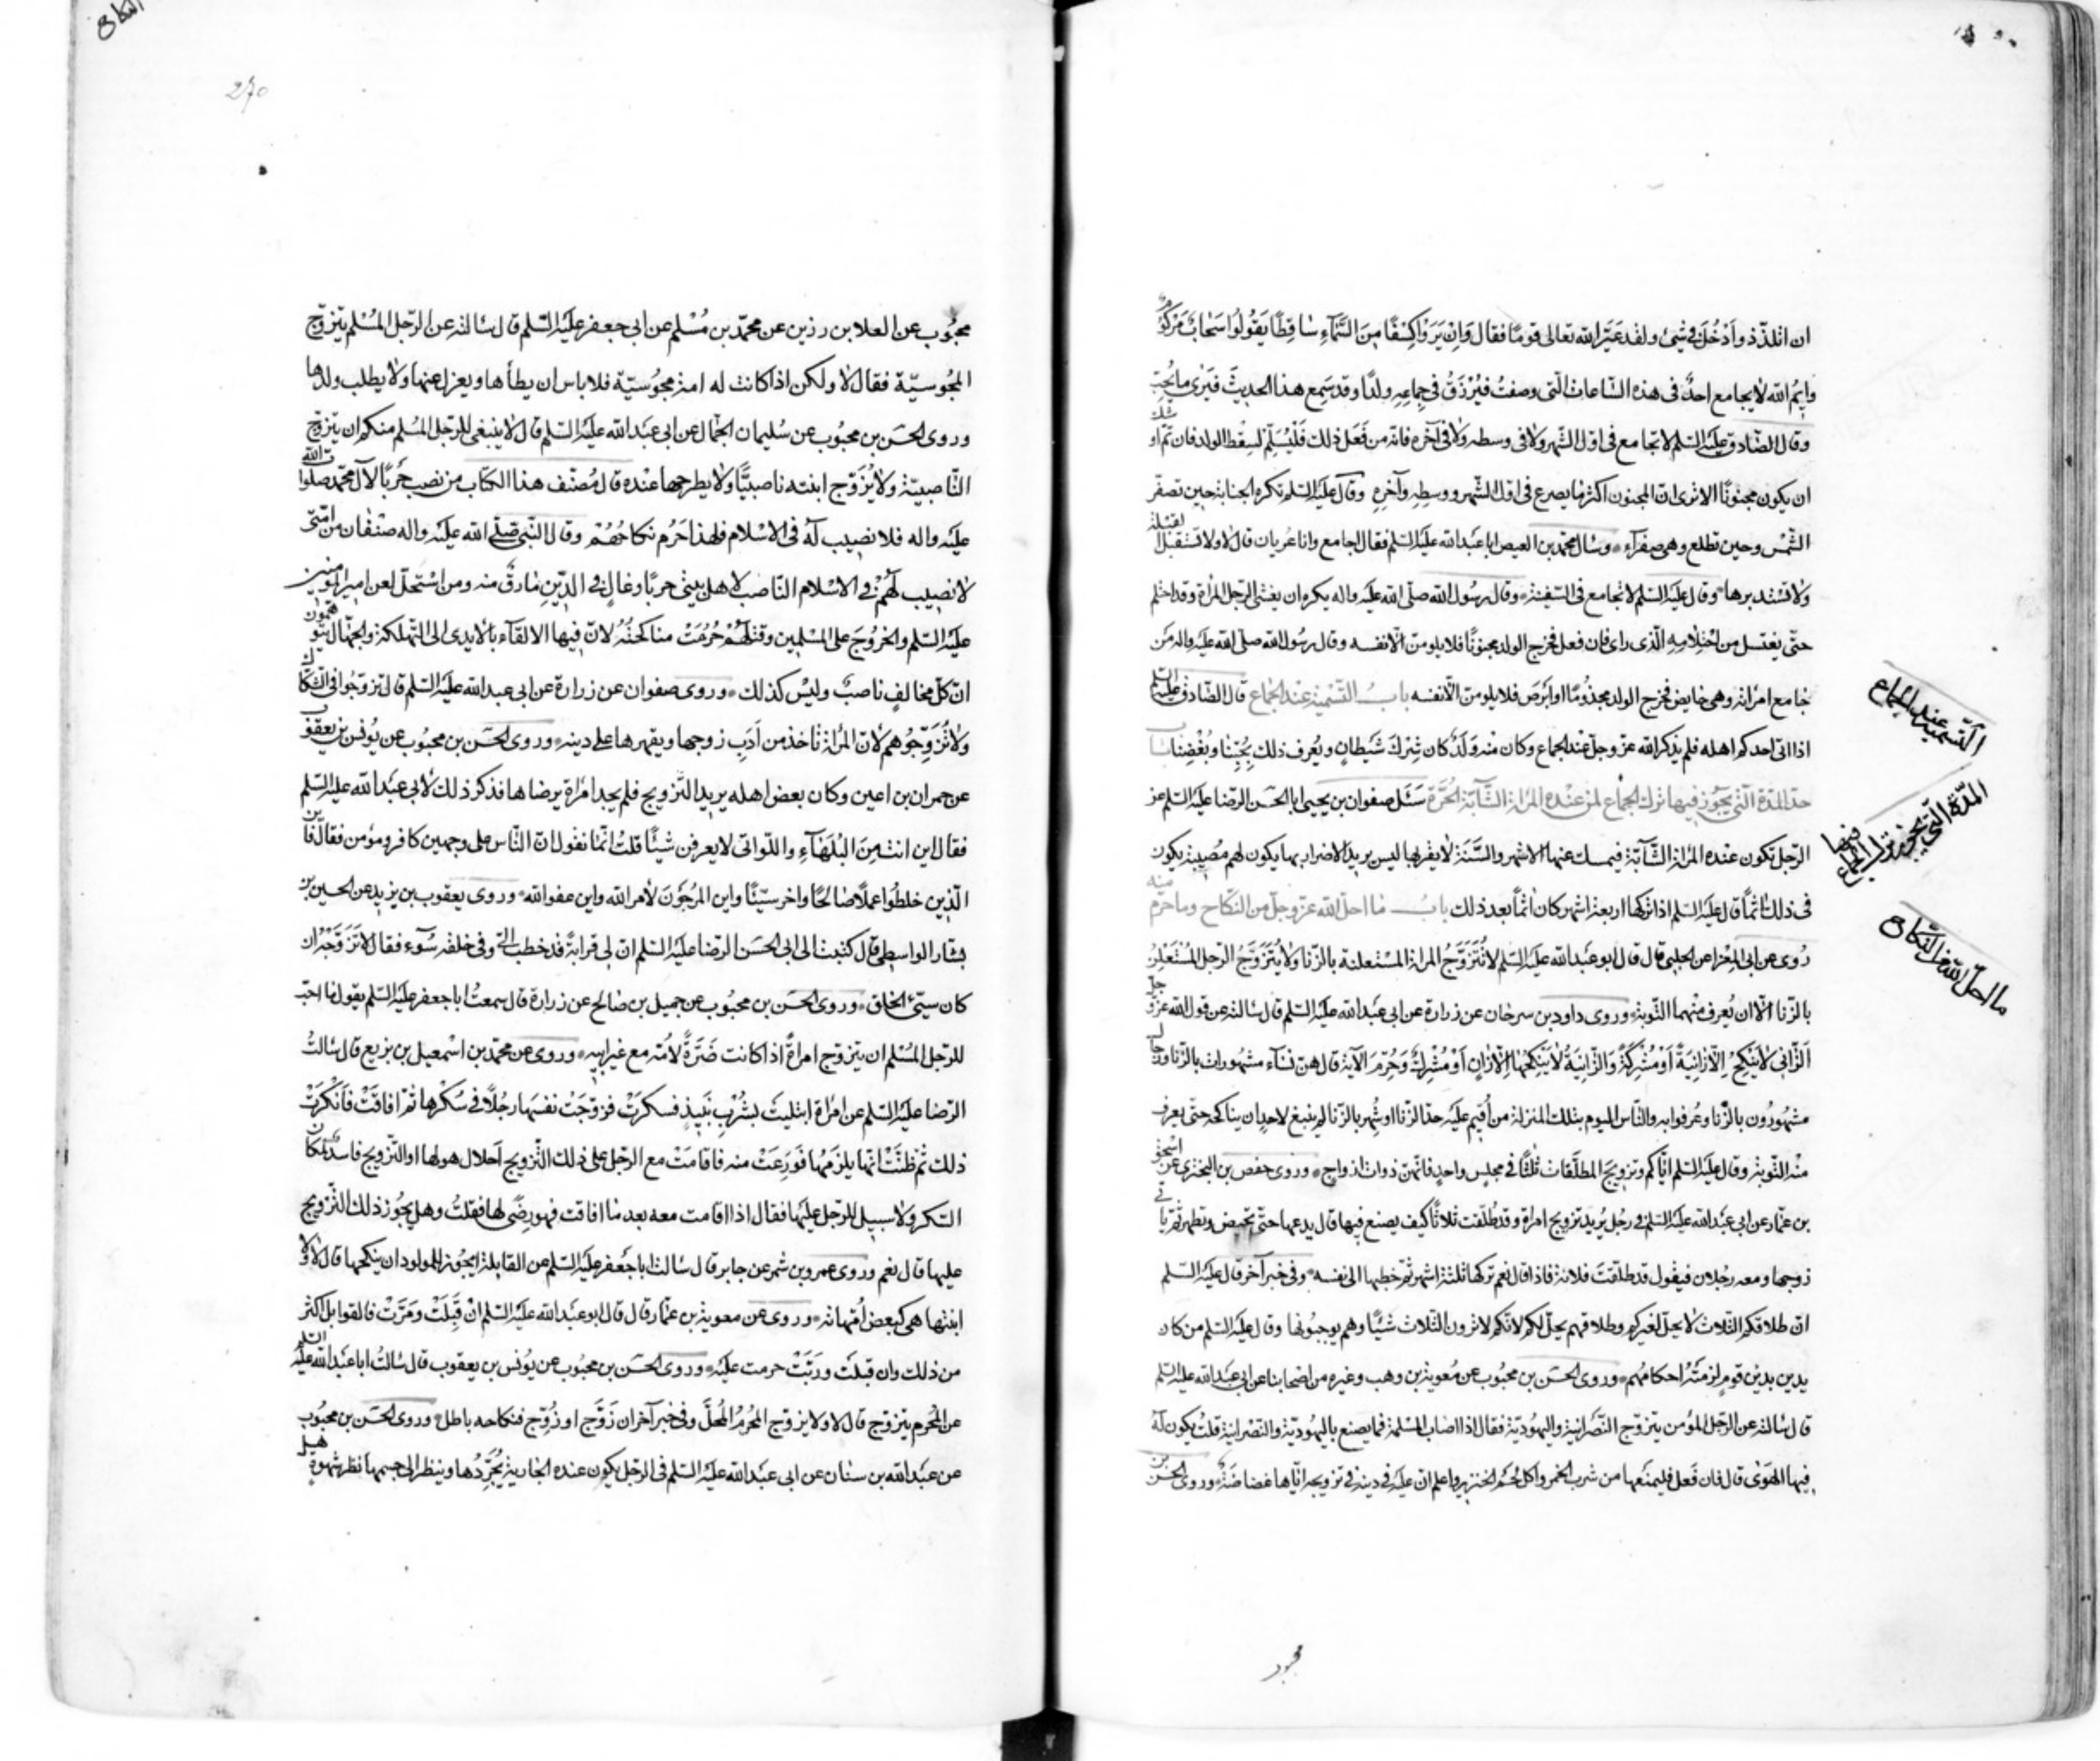 ان اتلذّذ واَدْخُلَ في شيئ ولقد عَيَّر الله تعالى قومًا فقال وَاِنْ يَرَوْا كِسْفًا مِنَ السَّمَآءِ سَاقِطًا يَقُولُوا سَحَابٌ مَرْكُومٌ
وايْمُ الله لا يجامع احدٌ في هذه السّاعات الّتى وصفتُ فيُرْزَقُ في جِماعِهِ ولدًا وقد سَمِع هذا الحديثَ فيَرى ما يُحِبّ
وقال الصّادق عليْه السّلم لا تجامع في اوّل الشّهر ولا في وسطه ولا في آخره فانّه من فَعَل ذلك فَلْيُسَلِّمْ لسِقْط الولد فان تَمّ اوشك
ان يكون مجنونًا الا ترى انّ المجنون اكثر ما يصرع في اوّل الشّهر ووسطِهِ وآخرِهِ وقال عليْه السّلم تكره الجنابة حين تصفرّ
الشّمْس وحين تطلع وهى صفرآء وسال محمّد بن العيص ابا عبْدالله عليْه السّلم فقال اجامع وانا عُريان قال لا ولا تستقبل القبلة
ولا تسْتدبرها وقال عليْه السّلم لا تجامع في السّفينة وقال رسُول الله صلّى الله عليْه واله يكره ان يغشى الرّجل المرأة وقد احتلم
حتّى يغتسل من احْتِلامِهِ الّذى راى فان فعل فخرج الولد مجنونًا فلا يلومنّ الّا نفسه وقال رسُول الله صلّى الله عليْه واله مَن
جامع امراته وهى حايض فخرج الولد مجذُومًا او ابْرَصَ فلا يلومنّ الّا نفسه بابُ التّسْمية عند الجماع قال الصّادق عليْه السّلم
اذا اتى احدكم اهله فلم يذكر الله عزّ وجلّ عند الجماع وكان منْه وَلَدٌ كان شِرْكَ شَيْطانٍ ويُعرف ذلك بِحُبِّنا وبُغْضِنا باب
حدّ المدّة الّتى يجوز فيها ترك الجماع لمن عنْده المرأة الشّابّة الحُرَّة سَئَل صفوان بن يحيى ابا الحسَن الرّضا عليْه السّلم عن
الرّجل تكون عنده المرأة الشّابّة فيمسك عنها الاشهر والسَّنَة لا يقربها ليس يريد الاضرار بها يكون لهم مُصيبة يكون
في ذلك اثمًا قال عليْه السّلم اذا تركها اربعة اشهر كان اثمًا بعد ذلك بابُ ما احلّ الله عزّ وجلّ من النّكاح وما حرّم منه
رُوى عن ابى المِغْرا عن الحلبى قال قال ابو عبْدالله عليْه السّلم لا تُتَزَوَّجُ المرأة المسْتعلنة بالزّنا ولا يُتَزَوَّجُ الرّجل المُسْتَعْلِنُ
بالزّنا الّا ان يُعرف منْهما التّوبة وروى داود بن سرحان عن زرارة عن ابى عبْدالله عليْه السّلم قال سَالته عن قول الله عزّ وجلّ
اَلزّانى لا يَنْكِحُ اِلّا زانِيَةً اَوْ مُشْرِكَةً وَالزّانِيَةُ لا يَنْكِحُها اِلّا زانٍ اَوْ مُشْرِكٌ وَحُرِّمَ الآية قال هنّ نسآء مشهُورات بالزّنا ورجال
مشهُودُون بالزّنا وعُرفوا به والنّاس اليوم بتلك المنزلة من اُقيم عليْه حدّ الزّنا او شُهِر بالزّنا لم ينبغ لاحدٍ ان يناكحه حتّى يعرف
منْه التّوبة وقال عليْه السّلم ايّاكم وتزويجَ المطلّقات ثلثًا في مجلِسٍ واحدٍ فانّهنّ ذوات ازواجٍ وروى حفص بن البختري عن اسْحق
بن عمّار عن ابى عبْدالله عليْه السّلم في رجُل يُريد تزويج امراة وقد طُلّقت ثلاثًا كيف يصنع فيها قال يدعها حتّى تحيض وتطهر ثمّ ياتى
زوجها ومعه رجُلان فيقول قد طلّقتَ فلانة فاذا قال نعم تركها ثلثة اشهر ثمّ خطبها الى نفسه وفي خبر آخر قال عليْه السّلم
انّ طلاقكم الثّلاث لا يحلّ لغيركم وطلاقهم يحلّ لكم لانّكم لا ترون الثّلاث شيئًا وهم يوجبُونها وقال عليْه السّلم من كان
يدين بدين قوم لزمتْه احكامهُم وروى الحسَن بن محبُوب عن مُعوية بن وهب وغيره من اصْحابنا عن ابى عبْدالله عليْه السّلم
قال سَالته عن الرّجل المؤمن يتزوّج النّصْرانية واليهُوديّة فقال اذا اصَاب المسْلمة فما يصنع باليهُوديّة والنّصْرانية قلتُ يكون لَهُ
فيها الهَوى قال فان فَعل فليمنَعها من شرب الخمر واكل لحْم الخنزير واعلم انّ عليْه في دينه في تزويجه ايّاها غضاضَة وروى الحسَن بن
التّسمية عند الجماع
المدّة الّتى يجوز فيها ترك الجماع
ما احلّ الله من النّكاح
محبوب
النكاح
270
محبُوب عن العلا بن رزين عن محمّد بن مُسْلم عن ابى جعفر عليْه السّلم قال سَالته عن الرّجل المُسْلم يتزوّج
المجُوسيّة فقال لا ولكن اذا كانت له امة مجوُسيّة فلا باس ان يطأها ويعزل عنها ولا يطلب ولدها
وروى الحسَن بن محبُوب عن سُليمان الجمّال عن ابى عبْدالله عليْه السّلم قال لا ينبغى للرّجل المُسْلم منكم ان يتزوّج
النّاصبيّة ولا يُزَوّج ابنته ناصبيًّا ولا يطرحها عنْده قال مُصنّف هذا الكتاب من نصب حَربًا لآل محمّد صلوات الله
عليْه واله فلا نصيب لَهُ في الاسْلام فلهذا حَرُم نكاحُهُمْ وقال النّبى صلّى الله عليْه واله صنْفان من امّتى
لا نصيب لَهُمْ في الاسْلام النّاصب لاهل بيتى حربًا وغالٍ في الدّينِ مارقٌ منه ومن اسْتحلّ لعن امير المؤمنين
عليْه السّلم والخرُوجَ على المسْلمين وقتلَهُمْ حُرِّمَتْ مناكحتُهُ لانّ فيها الالقآء بالايدى الى التّهلكة والجهّال يتوهّمون
انّ كلّ مخالفٍ ناصبٌ وليْس كذلك وروى صفوان عن زرارة عن ابى عبدالله عليْه السّلم قال تزوّجُوا في الشّكّاك
ولا تُزَوِّجُوهم لانّ المرأة تاخذ من اَدَبِ زوجها ويقهرها على دينه وروى الحسَن بن محبُوب عن يُونس بن يعقوب
عن حمران بن اعين وكان بعض اهله يريد التّزويج فلم يجد امراة يرضاها فذكر ذلك لابى عبْدالله عليْه السّلم
فقال اين انت مِنَ البُلَهَآءِ واللّواتى لا يعرفن شيْئًا قلتُ انّما نقول انّ النّاس على وجهين كافر ومؤمن فقال فاين
الّذين خلطُوا عملًا صَالحًا واخر سيّئًا واين المرجُونَ لامر الله واين عفو الله وروى يعقوب بن يزيد عن الحسين بن
بشّار الواسطى قال كتبت الى ابى الحسَن الرّضا عليْه السّلم ان لى قرابةً قد خطب الىّ وفي خلقه سُوء فقال لا تزَوّجْه ان
كان سيّئ الخلق وروى الحسَن بن محبُوب عن جميل بن صَالح عن زرارة قال سمعتُ ابا جعفر عليْه السّلم يقول ما احبّ
للرّجل المُسْلم ان يتزوّج امراةً اذا كانت ضَرّةً لاُمّه مع غير ابيه وروى عن محمّد بن اسْمعيل بن بزيع قال سَالتُ
الرّضا عليْه السّلم عن امراة ابتليتْ بشُرْبِ نَبيذٍ فسكرَتْ فزوّجَتْ نفسَها رجُلًا في سُكْرها ثمّ افاقَتْ فاَنْكرَتْ
ذلك ثم ظنّتْ انّها يلزَمهُا فوَرِعَتْ منه فاقامَتْ مع الرّجل على ذلك التّزويج اَحلال هو لها او التّزويج فاسد لمكان
السّكر ولا سبيل للرّجل عليْها فقال اذا اقامت معه بعد ما افاقت فهو رِضًى لها فقلتُ وهل يجُوز ذلك التّزويج
عليها قال نعم وروى عمرو بن شمر عن جابر قال سَالت ابا جَعفر عليْه السّلم عن القابلة ايجُوز للمولود ان ينكحها قال لا ولا
ابنتها هى كبعض اُمّهاته وروى عن معوية بن عمّار قال قال ابو عبْدالله عليْه السّلم انْ قَبِلَتْ ومَرّتْ فالقوابل اكثر
من ذلك وان قبلَت ورَبَّتْ حرمت عليْه وروى الحسَن بن محبُوب عن يُونس بن يعقوب قال سَالتُ ابا عبْدالله عليْه السّلم
عن المُحْرم يتزوّج قال لا ولا يزوّج المُحْرمُ المُحلَّ وفي خبر آخر ان زَوَّج او زُوّج فنكاحه باطل وروى الحسَن بن محبُوب
عن عبْدالله بن سنان عن ابى عبْدالله عليْه السّلم في الرّجل يكون عنده الجارية يُجَرِّدُها وينظر الى جسمها نظر شهوةٍ هل